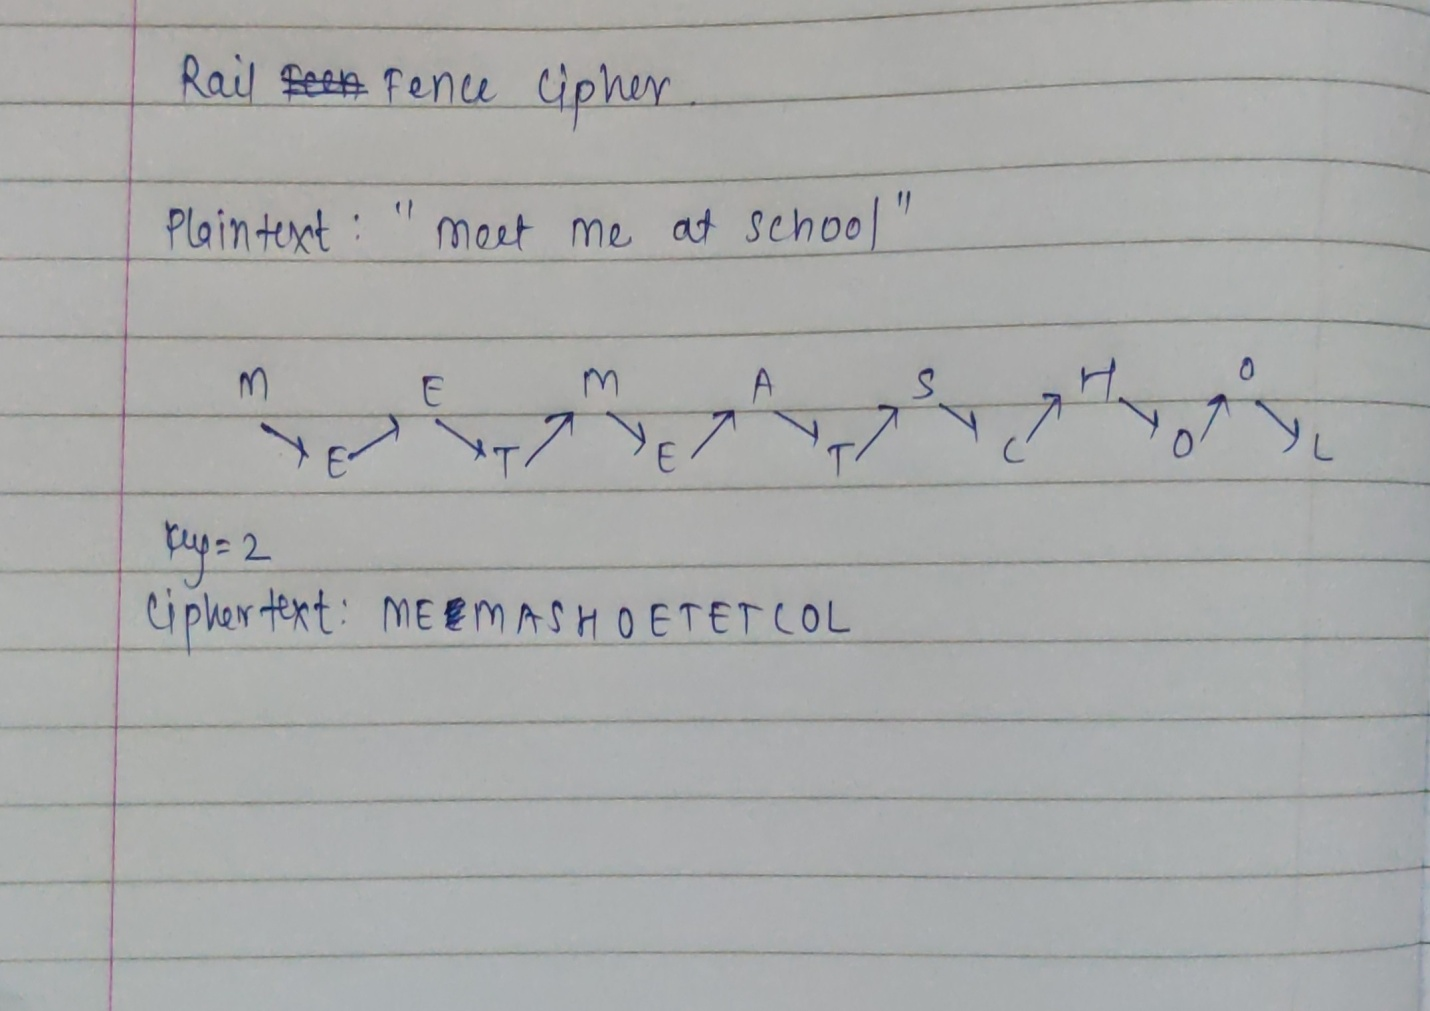 Rail Fence Cipher.
Plaintext: "meet me at school"
M E M A S H O
E T E T C O L
Key=2
Ciphertext: MEMASHOETETCOL